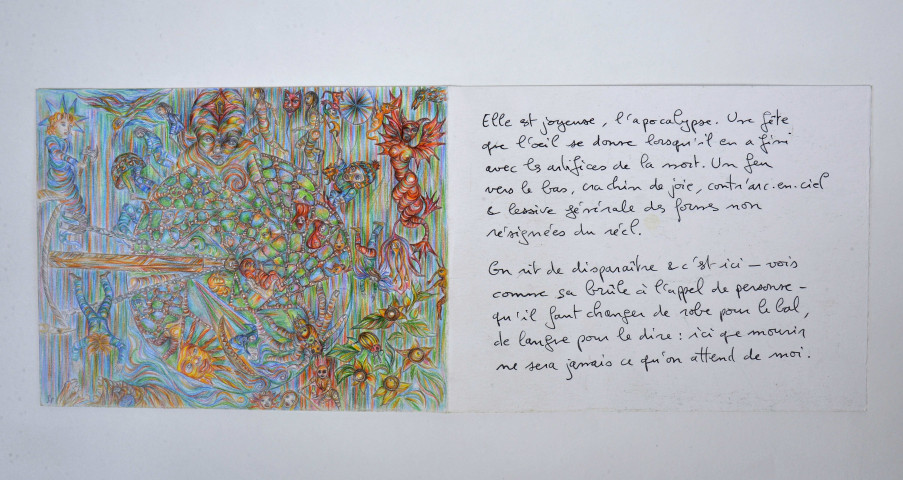 Elle est joyeuse, l'apocalypse. Une fête
que l'œil se donne lorsqu'il en a fini
avec les artifices de la mort. Un feu
vers le bas, crachin de joie, contr'arc-en-ciel
& lessive générale des formes non
résignées du réel.
On rit de disparaître & c'est ici – vois
comme ça brûle à l'appel de personne –
qu'il faut changer de robe pour le bal,
de langue pour le dire : ici que mourir
ne sera jamais ce qu'on attend de moi.